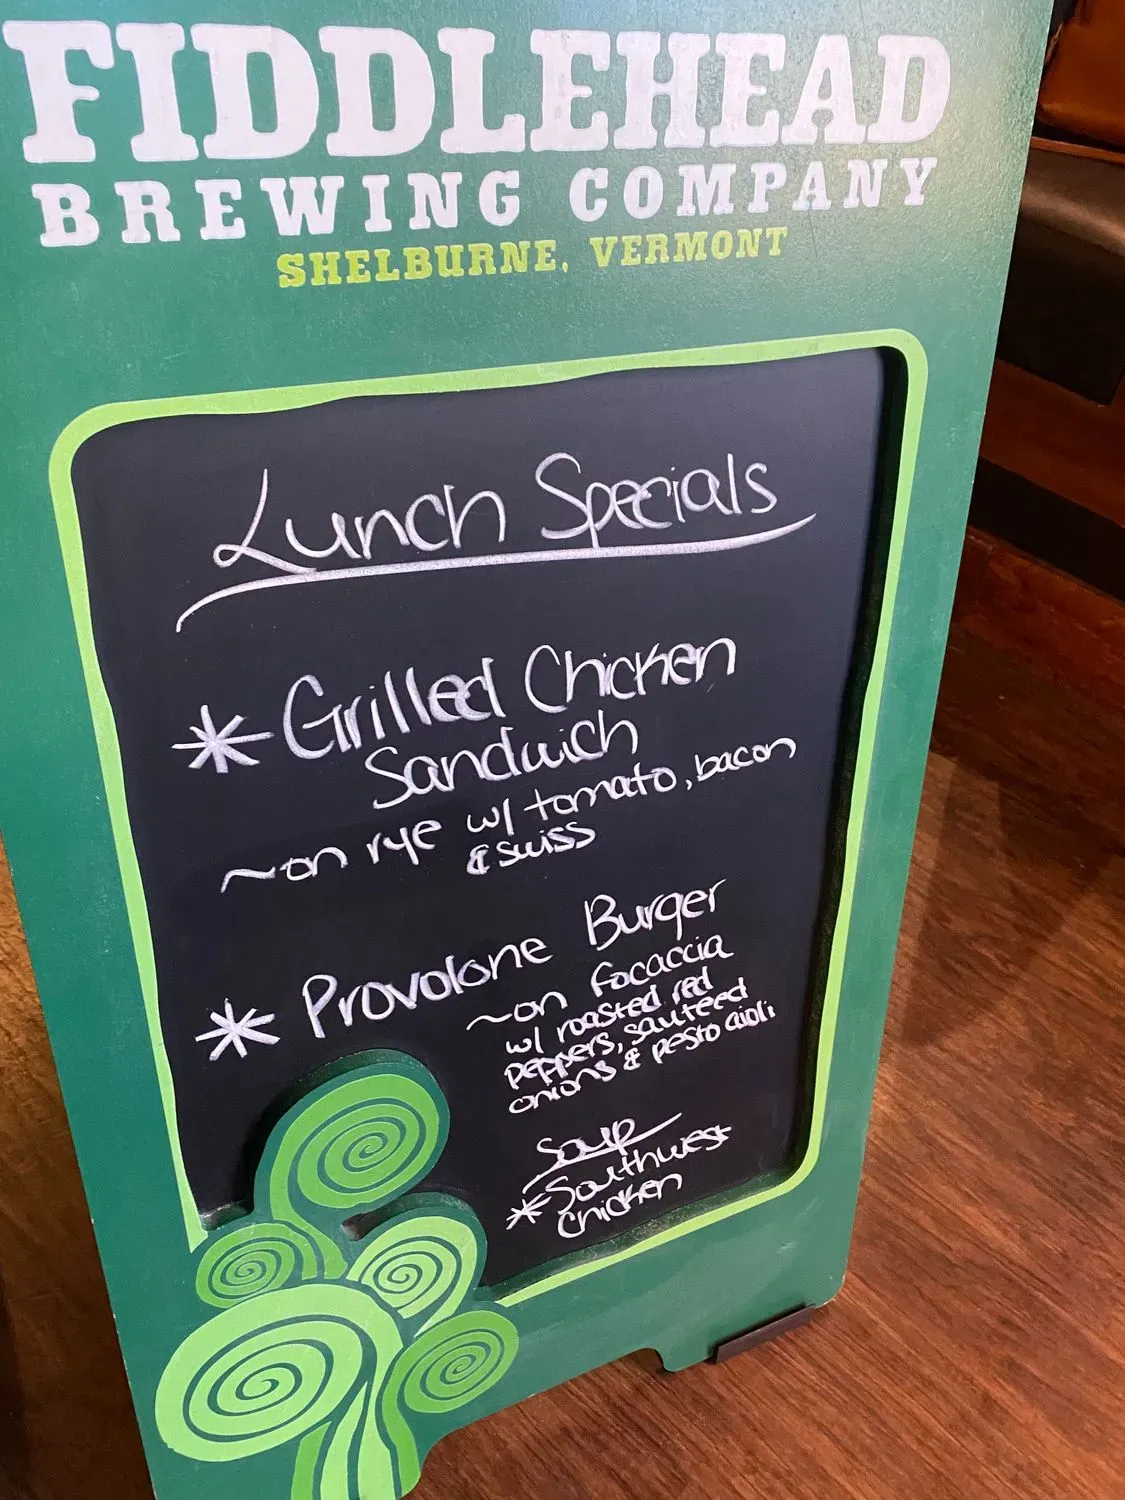 FIDDLEHEAD
BREWING COMPANY
SHELBURNE, VERMONT
Lunch Specials
* Grilled Chicken
Sandwich
~on rye w/ tomato, bacon
& swiss
* Provolone Burger
~on focaccia
w/ roasted red
peppers, sauteed
onions & pesto aioli
Soup
* Southwest
Chicken